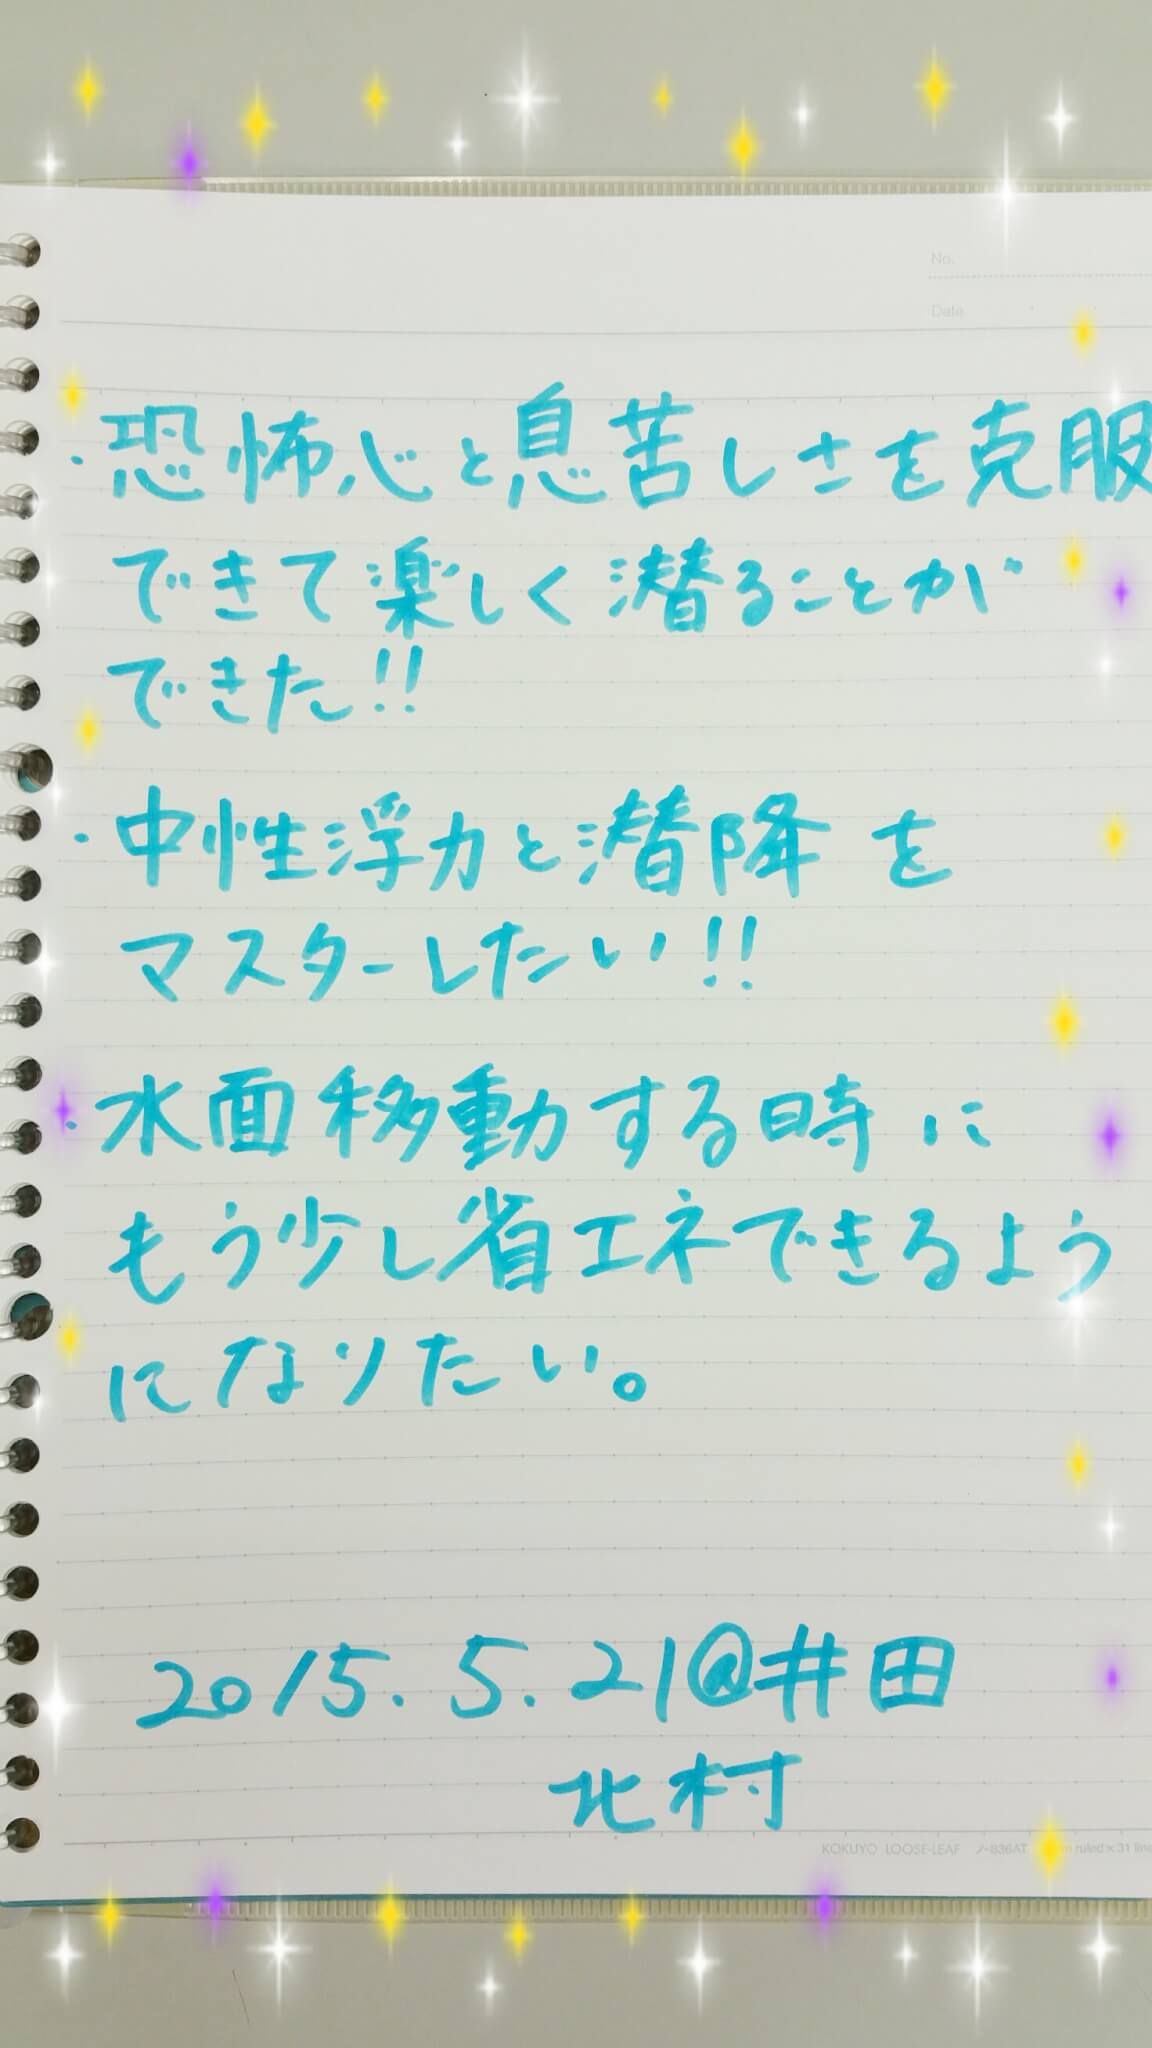 No.
Date
・恐怖心と息苦しさを克服
できて楽しく潜ることが
できた!!
・中性浮力と潜降を
マスターしたい!!
・水面移動する時に
もう少し省エネできるよう
になりたい。
2015.5.21@井田
北村
KOKUYO LOOSE-LEAF ノ-836AT ruled×31 line